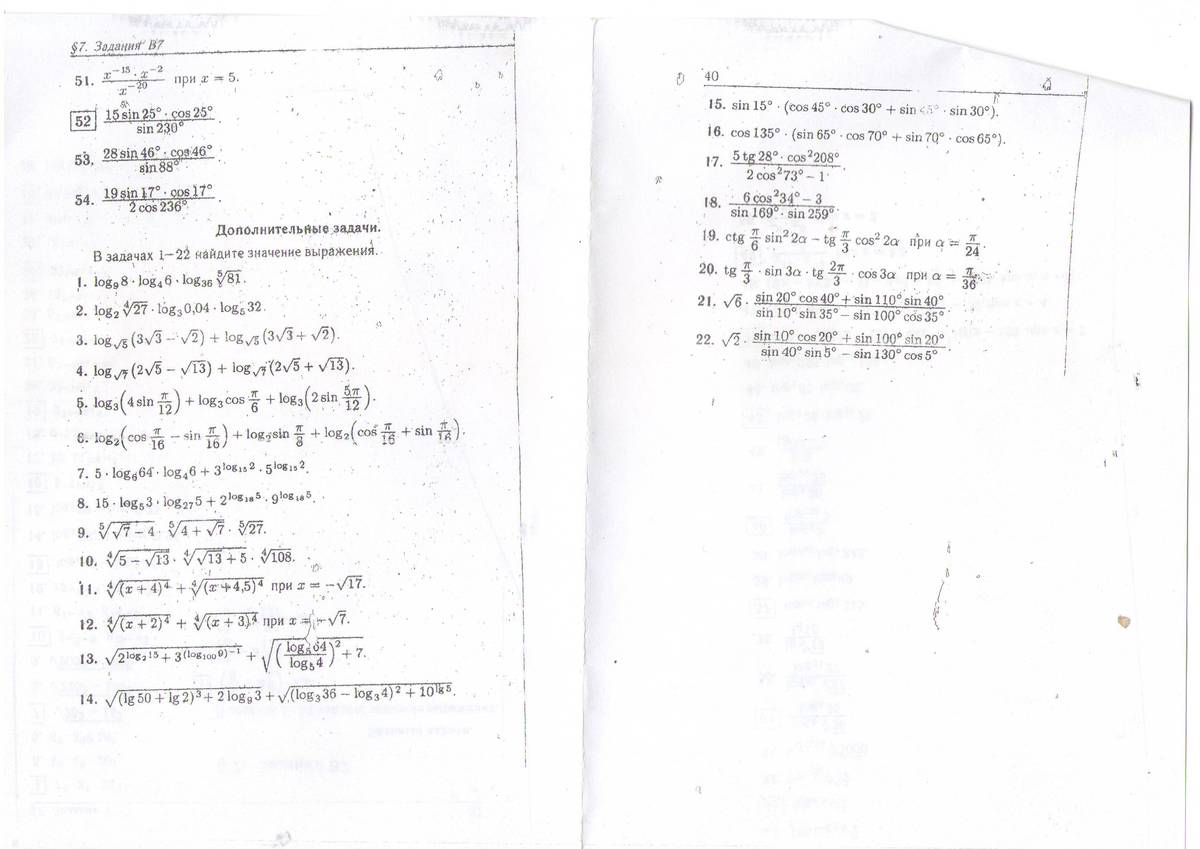 §7. Задания В7
51. \frac{x^{-15} \cdot x^{-2}}{x^{-20}} при x = 5.
52 \frac{15 sin 25° · cos 25°}{sin 230°}.
53. \frac{28 sin 46° · cos 46°}{sin 88°}.
54. \frac{19 sin 17° · cos 17°}{2 cos 236°}.
Дополнительные задачи.
В задачах 1—22 найдите значение выражения.
1. log₉8 · log₄6 · log₃₆ ⁵√81.
2. log₂ ⁴√27 · log₃0,04 · log₅32.
3. log_{√5}(3√3 − √2) + log_{√5}(3√3 + √2).
4. log_{√7}(2√5 − √13) + log_{√7}(2√5 + √13).
5. log₃(4 sin \frac{π}{12}) + log₃cos \frac{π}{6} + log₃(2 sin \frac{5π}{12}).
6. log₂(cos \frac{π}{16} − sin \frac{π}{16}) + log₂sin \frac{π}{8} + log₂(cos \frac{π}{16} + sin \frac{π}{16}).
7. 5 · log₆64 · log₄6 + 3^{log₁₅2} · 5^{log₁₅2}.
8. 15 · log₅3 · log₂₇5 + 2^{log₁₈5} · 9^{log₁₈5}.
9. ⁵√(√7 − 4) · ⁵√(4 + √7) · ⁵√27.
10. ⁴√(5 − √13) · ⁴√(√13 + 5) · ⁴√108.
11. ⁴√((x + 4)⁴) + ⁴√((x + 4,5)⁴) при x = −√17.
12. ⁴√((x + 2)⁴) + ⁴√((x + 3)⁴) при x = −√7.
13. √(2^{log₂15} + 3^{(log₁₀₀9)^{-1}}) + √((\frac{log₅64}{log₅4})² + 7).
14. √((lg 50 + lg 2)³ + 2 log₉3 + √((log₃36 − log₃4)² + 10^{lg5})).
40
15. sin 15° · (cos 45° · cos 30° + sin 45° · sin 30°).
16. cos 135° · (sin 65° · cos 70° + sin 70° · cos 65°).
17. \frac{5 tg 28° · cos²208°}{2 cos²73° − 1}.
18. \frac{6 cos²34° − 3}{sin 169° · sin 259°}.
19. ctg \frac{π}{6} sin² 2α − tg \frac{π}{3} cos² 2α при α = \frac{π}{24}.
20. tg \frac{π}{3} · sin 3α · tg \frac{2π}{3} · cos 3α при α = \frac{π}{36}.
21. √6 · \frac{sin 20° cos 40° + sin 110° sin 40°}{sin 10° sin 35° − sin 100° cos 35°}.
22. √2 · \frac{sin 10° cos 20° + sin 100° sin 20°}{sin 40° sin 5° − sin 130° cos 5°}.